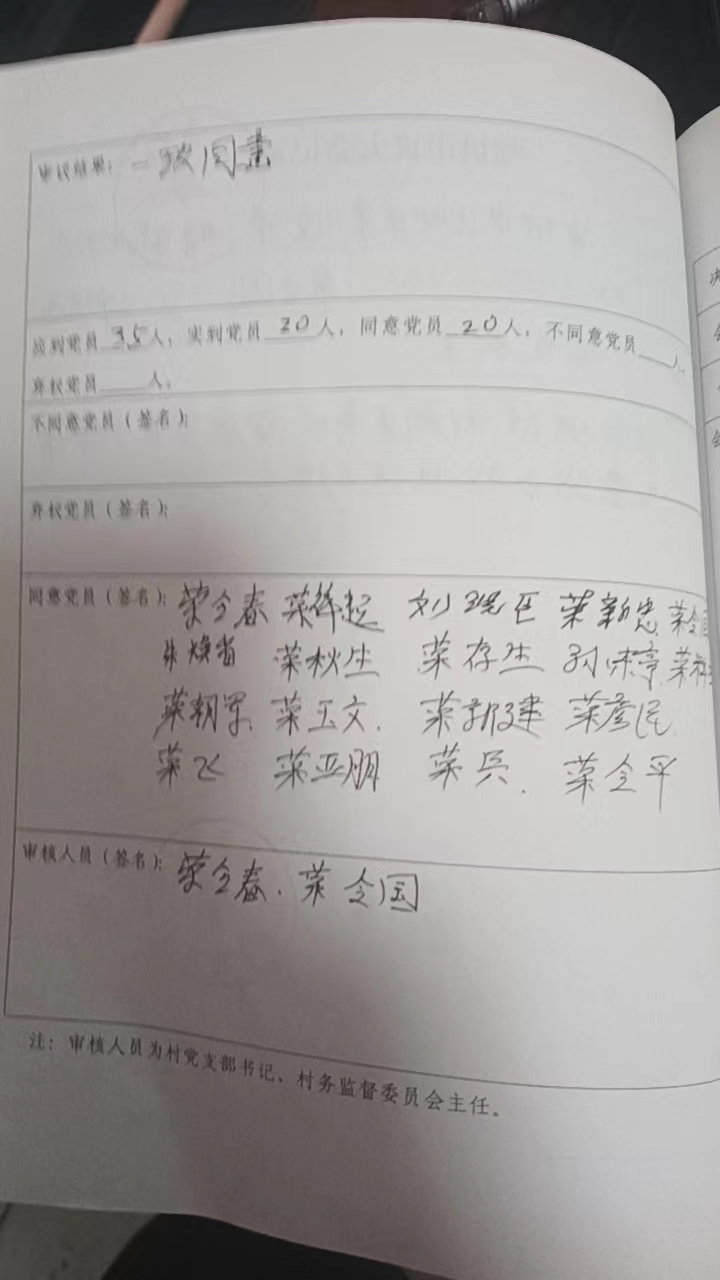 审议结果：一致同意
应到党员 35 人，实到党员 20 人，同意党员 20 人，不同意党员 人，
弃权党员 人。
不同意党员（签名）：
弃权党员（签名）：
同意党员（签名）：荣全春 荣 刘 荣新忠 荣全国
荣秋生 荣存生 孙 荣
荣朝军 荣玉文 荣新建 荣彦民
荣飞 荣亚朋 荣兵 荣全平
审核人员（签名）：荣全春 荣全国
注：审核人员为村党支部书记、村务监督委员会主任。